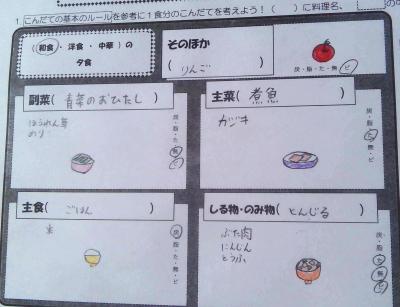 1. こんだての基本のルールを参考に1食分のこんだてを考えよう！( )に料理名、
(和食・洋食・中華)の
夕食
そのほか
(りんご)
炭・脂・た・無・ビ
副菜(青菜のおひたし)
ほうれん草
のり
炭・脂・た・無・ビ
主菜(煮魚)
カジキ
炭・脂・た・無・ビ
主食(ごはん)
米
炭・脂・た・無・ビ
しる物・のみ物(とんじる)
ぶた肉
にんじん
とうふ
炭・脂・た・無・ビ